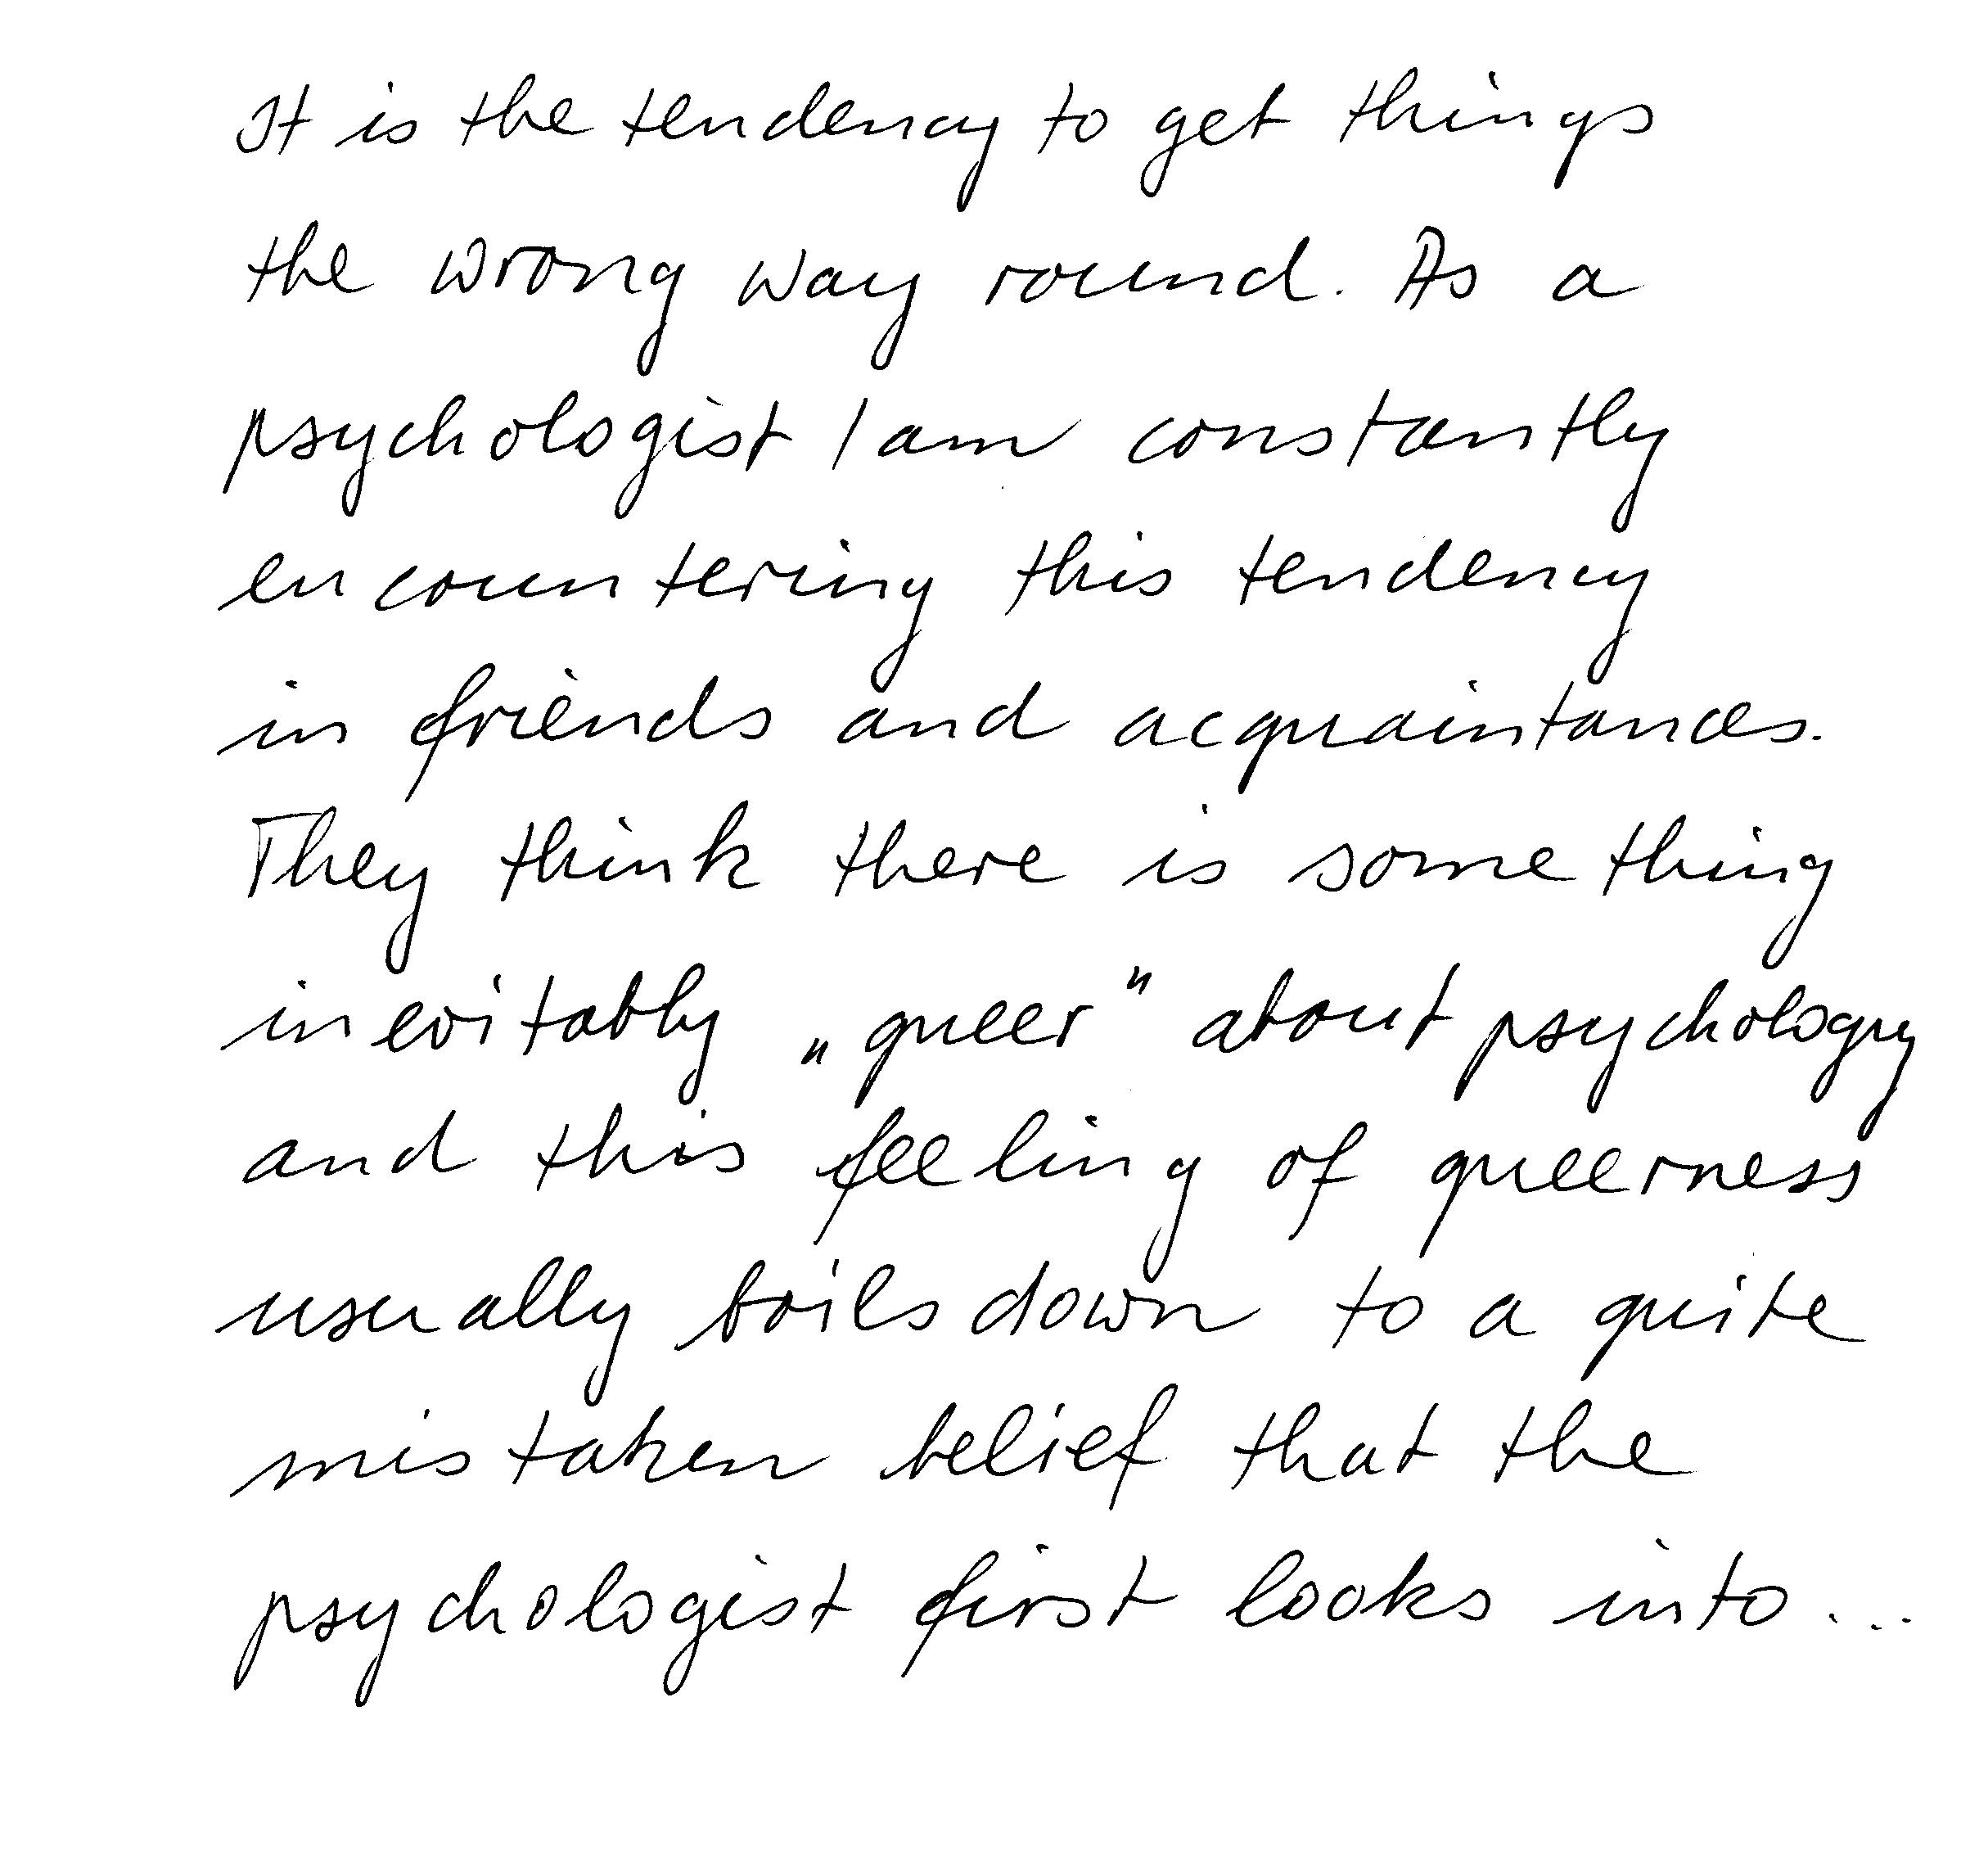 It is the tendency to get things
the wrong way round. As a
psychologist I am constantly
encountering this tendency
in friends and acquaintances.
They think there is something
inevitably „queer" about psychology
and this feeling of queerness
usually boils down to a quite
mistaken belief that the
psychologist first looks into...